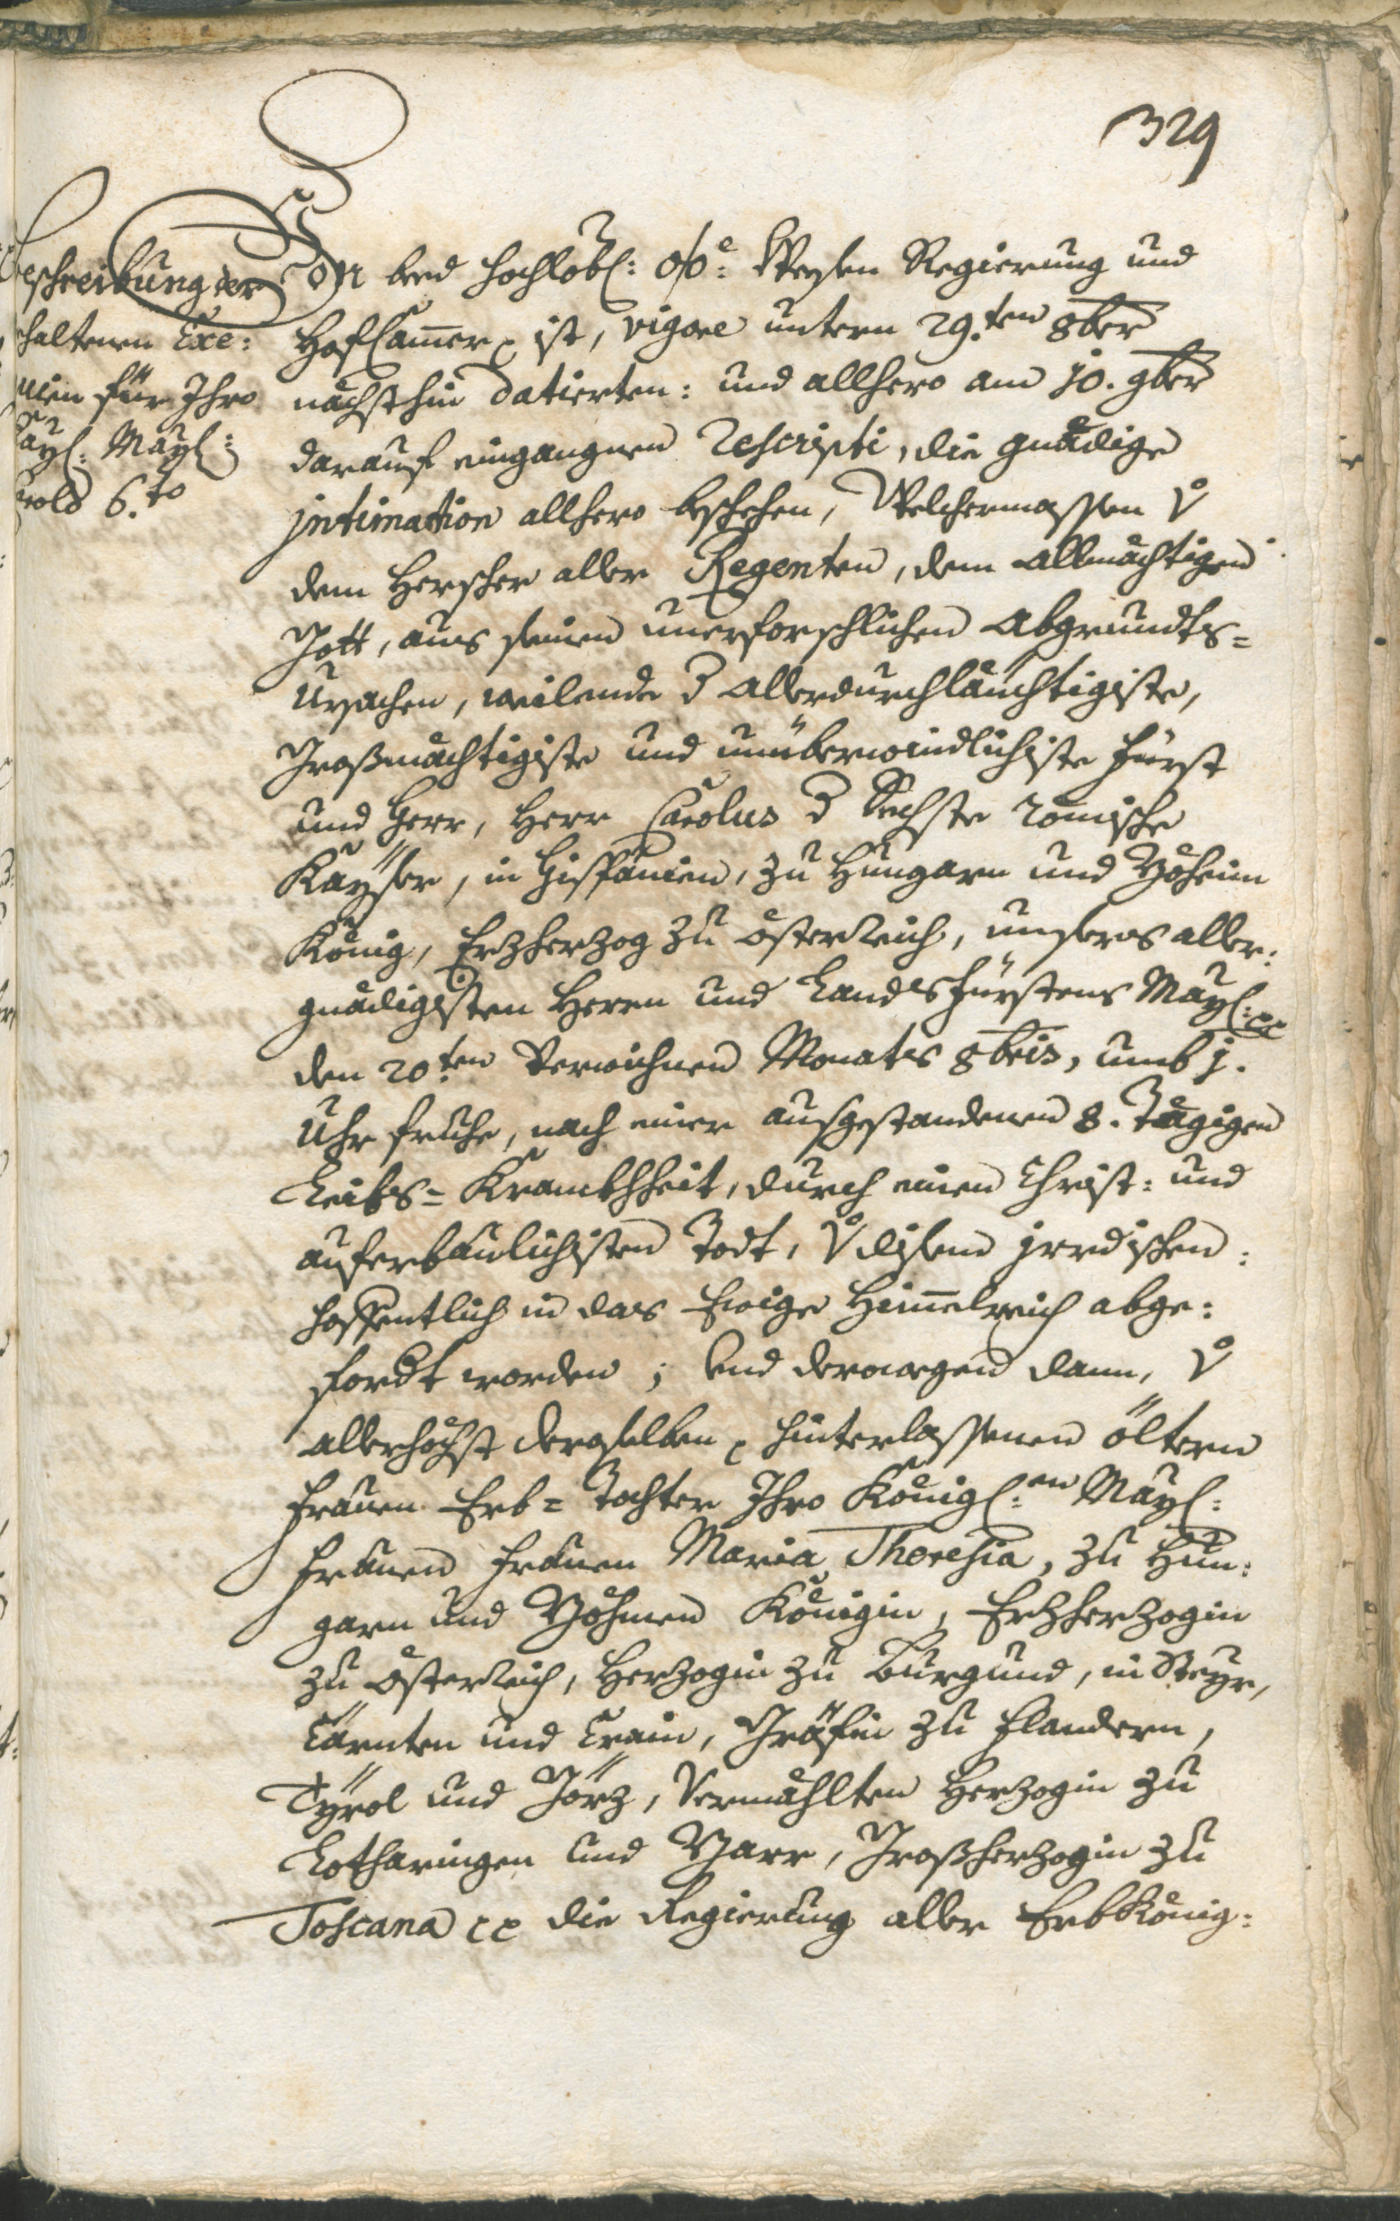 329
Beschreibung der
haltenen Exe:
quien für Ihro
Kayl: Mayl:
Carols 6.to
Von beed hochlöbl: O/Ö: Weesen Regierung und
HofCam̄er p ist, vigore untern 29.ten 8ber
nächsthin datierten: und allhero am 10. 9ber
darauf eingangnen Rescripti, die gnädige
jntimation allhero beschehen, Welchermassen v̊
dem Herscher aller Regenten, dem Allmächtigen
Gott, aus seinen unerforschlichen Abgrundts=
Ursachen, weilende d Allerdurchläuchtigiste,
Großmächtigiste und unüberwindlichiste Fürst
und Herr, Herr Carolus d Sechste römische
Kayser, in Hispänien, zu Hungarn und Böheim
König, Erzherzog zu Österreich, unseres aller:
gnädigisten Herrn und Landsfürstens Mayl: pp
den 20.ten Verwichnen Monats 8bris, umb j.
Uhr fruhe, nach einer ausgestandenen 8. Tägigen
Leibs= Krankhheit, durch einen Christ: und
auferbäulichisten Todt, v̊ disem jrrdischen:
hoffentlich in das Ewige Him̄elreich abge:
fordt worden; und derowegen dann, v̊
allerhöchst deroselben p hinterlassenen öltern
Frauen Erb= Tochter Ihro Königl:en Mayl:
Frauen Frauen Maria Theresia, zu Hun:
garn und Böhmen Königin, Erzherzogin
zu Österreich, Herzogin zu Burgund, in Steyr,
Cärnten und Crain, Gräfin zu Flandern,
Tÿrol und Görz, Vermählten Herzogin zu
Lotharingen und Barr, Großherzogin zu
Toscana pp die Regierung aller Erbkönig: